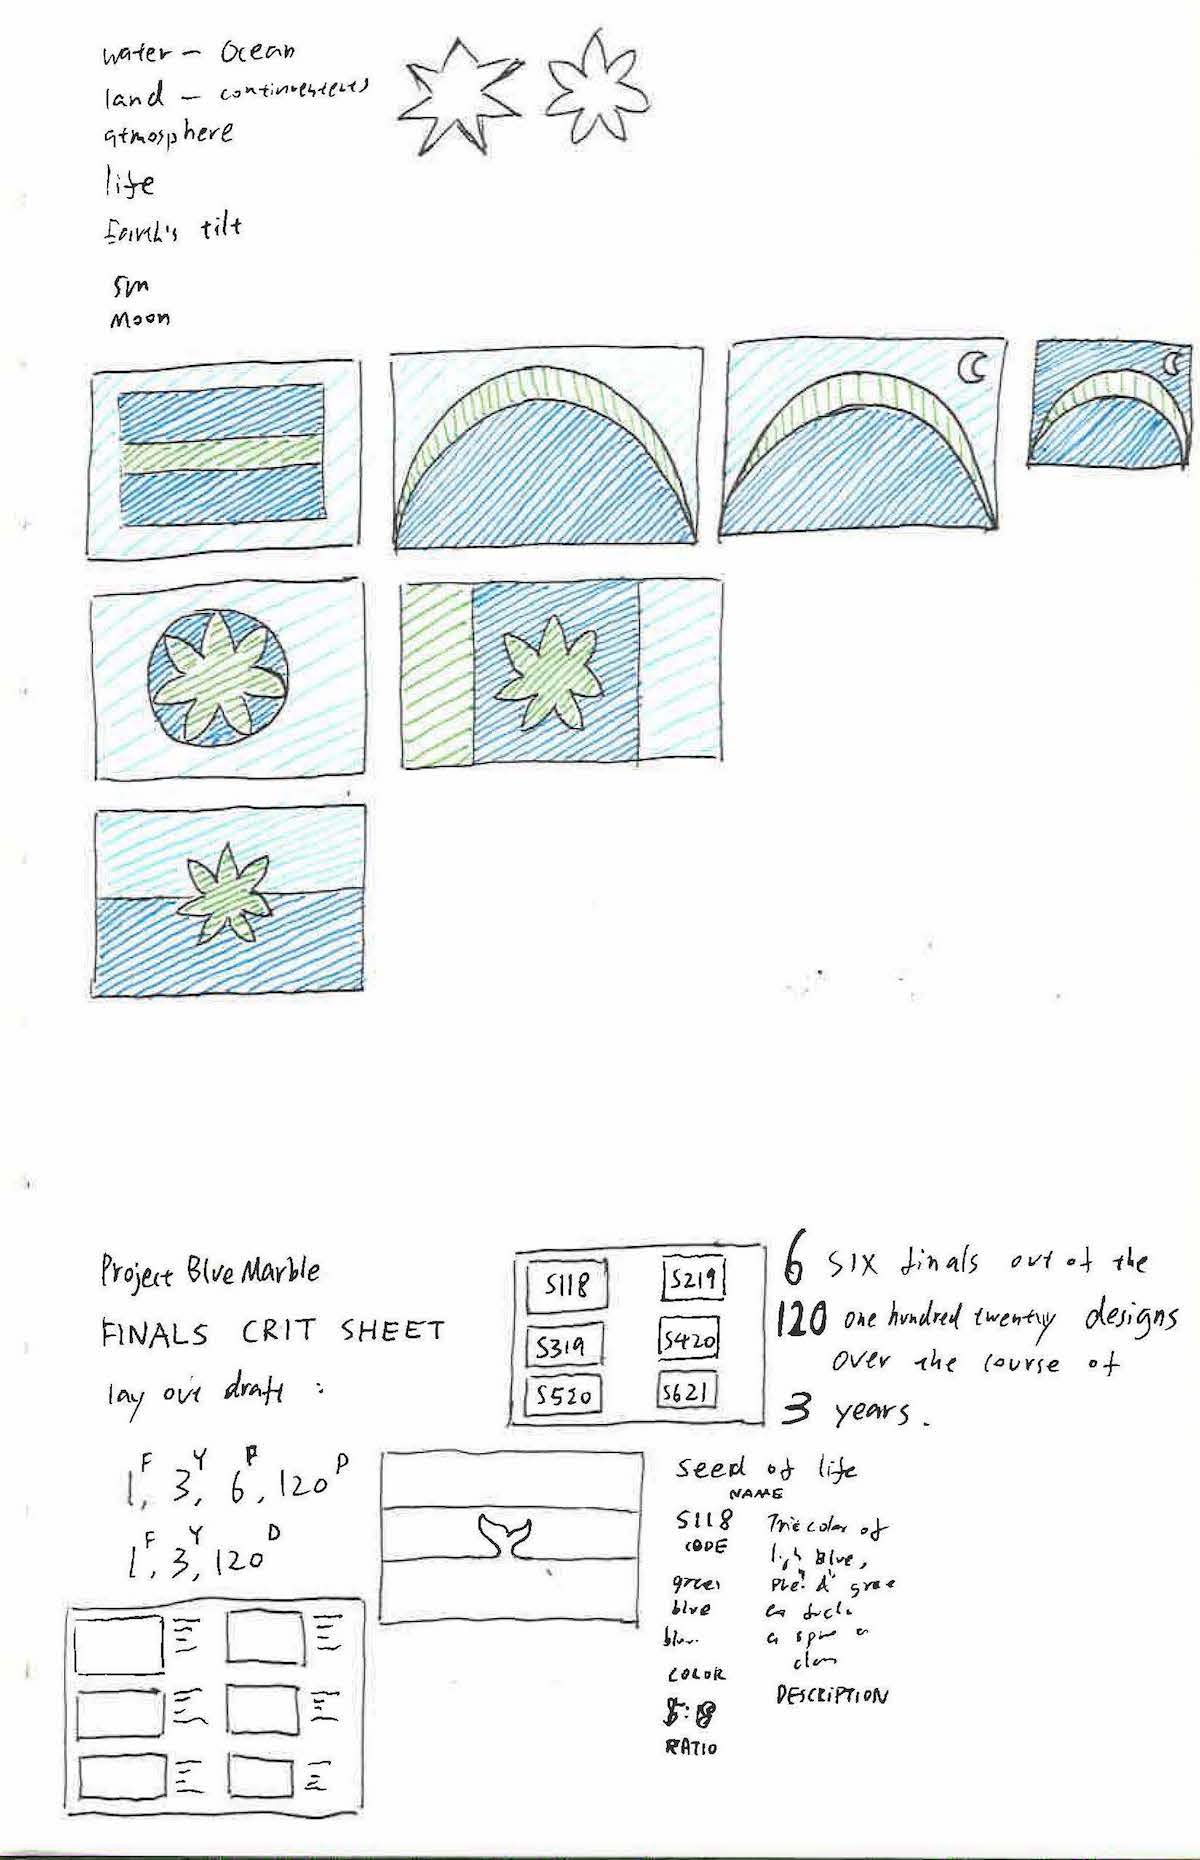 water – Ocean
land –
atmosphere
life
Earth's tilt
sun
Moon
Project Blue Marble
FINALS CRIT SHEET
lay out draft :
S118 S219
S319 S420
S520 S621
6 SIX finals out of the
120 one hundred twenty designs
over the course of
3 years.
F Y F D
1, 3, 6, 120
F Y D
1, 3, 120
seed of life
NAME
S118
CODE
green
blue
COLOR
RATIO
Tricolor of
DESCRIPTION